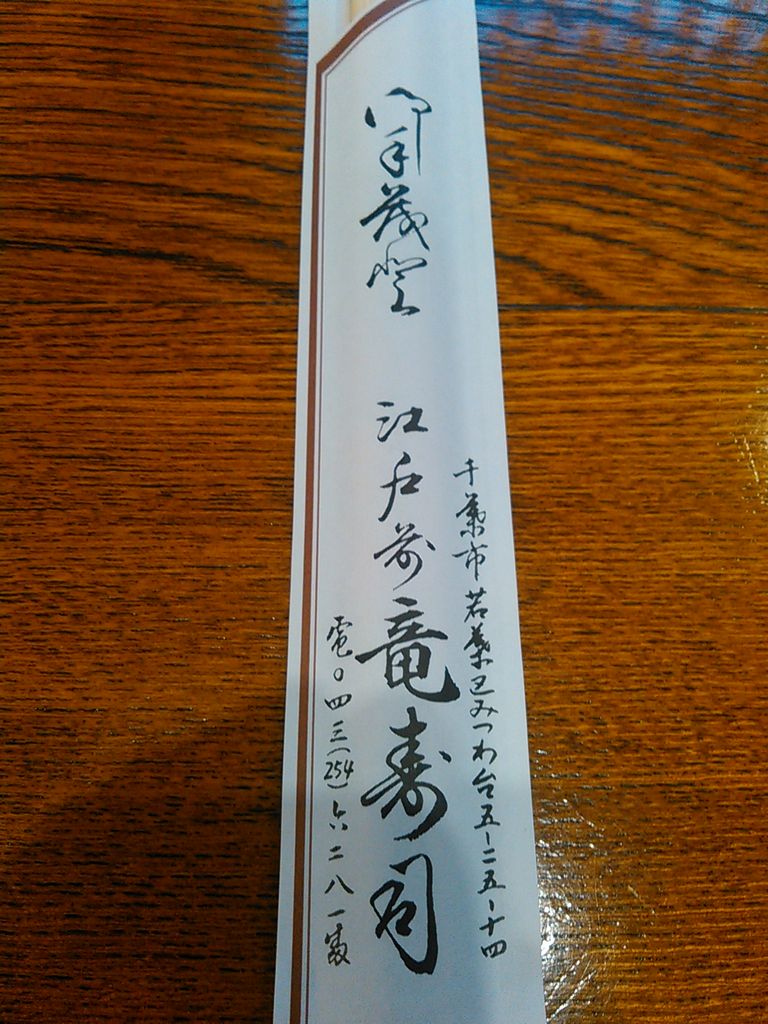 御手茂登
千葉市若葉区みつわ台五ー二五ー十四
江戸前 竜寿司
電〇四三(254)六二八一番